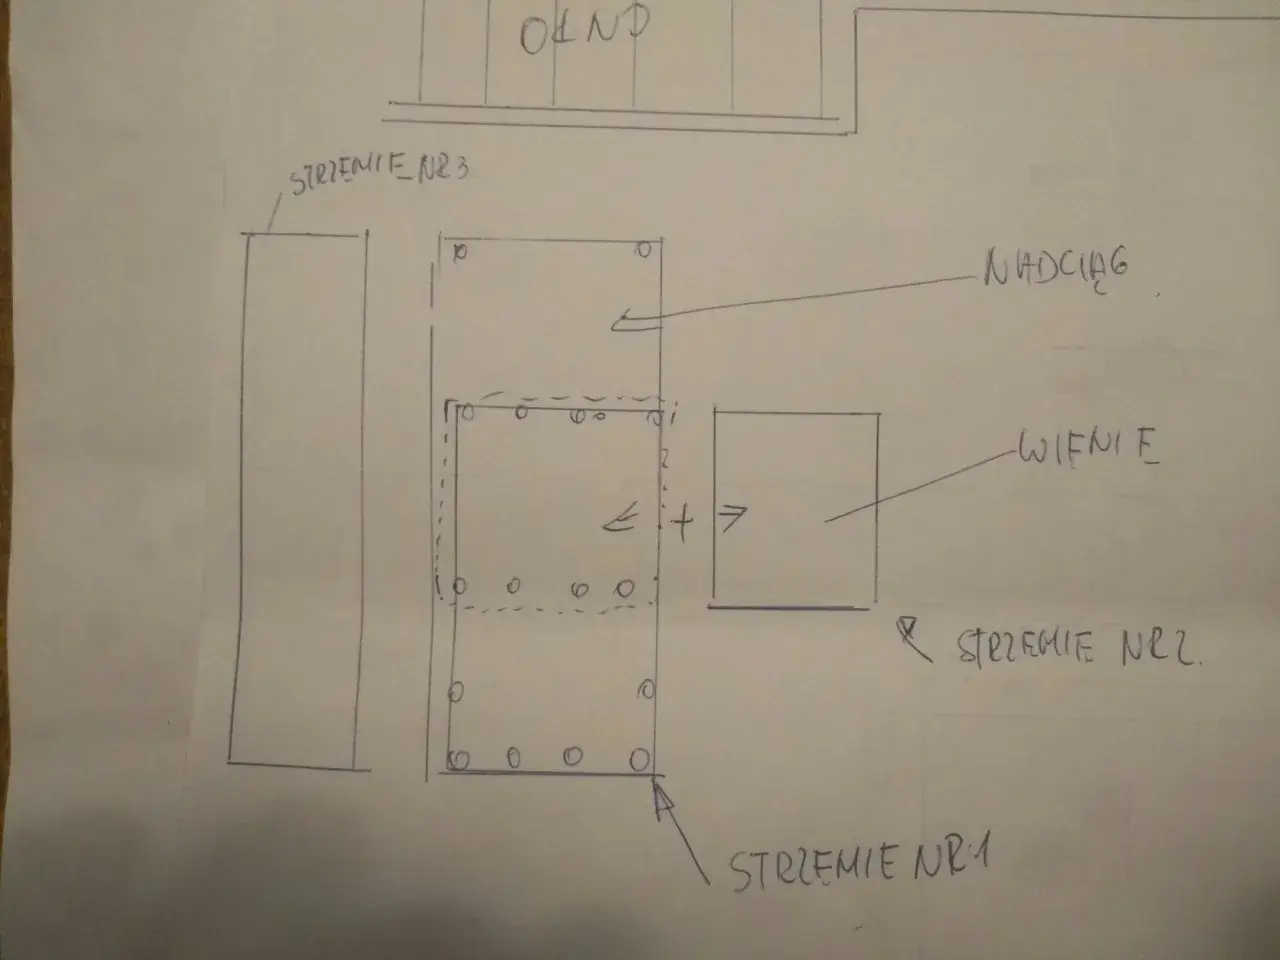 OKNO
STRZEMIE NR 3
NADCIĄG
WIENIE
+
STRZEMIE NR 2.
STRZEMIE NR 1